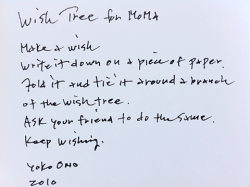 Wish Tree for MoMA
Make a wish
Write it down on a piece of paper.
Fold it and tie it around a branch
of the wish tree.
Ask your friend to do the same.
Keep wishing.
Yoko Ono
2010